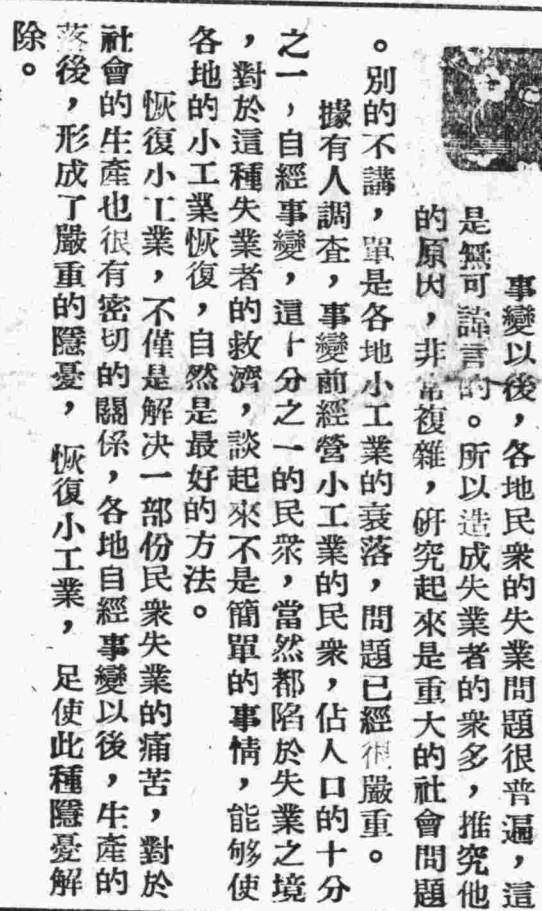 事變以後，各地民衆的失業問題很普遍，這
是無可諱言的。所以造成失業者的衆多，推究他
的原因，非常複雜，硏究起來是重大的社會問題
。別的不講，單是各地小工業的衰落，問題已經很嚴重。
據有人調查，事變前經營小工業的民衆，佔人口的十分
之一，自經事變，這十分之一的民衆，當然都陷於失業之境
，對於這種失業者的救濟，談起來不是簡單的事情，能够使
各地的小工業恢復，自然是最好的方法。
恢復小工業，不僅是解决一部份民衆失業的痛苦，對於
社會的生產也很有密切的關係，各地自經事變以後，生產的
落後，形成了嚴重的隱憂，恢復小工業，足使此種隱憂解
除。